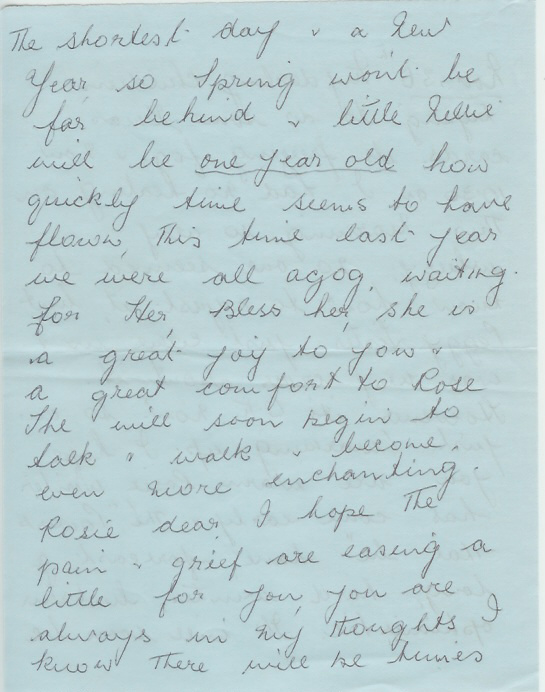 The shortest day & a New
Year, so Spring won't be
far behind & little Nellie
will be one year old how
quickly time seems to have
flown, This time last year
we were all agog, waiting.
for Her, Bless her, she is
a great joy to you &
a great comfort to Rose
She will soon begin to
talk & walk & become.
even more enchanting.
Rosie dear, I hope The
pain & grief are easing a
little for you, you are
always in my Thoughts I
know There will be times